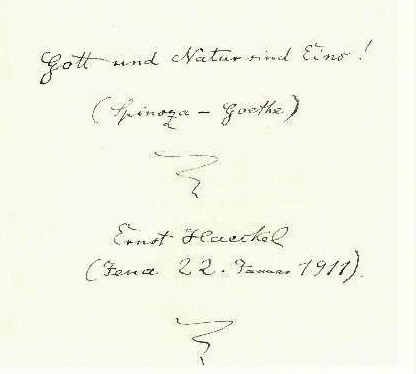 Gott und Natur sind Eins!
(Spinoza – Goethe)
Ernst Haeckel
(Jena 22. Januar 1911).